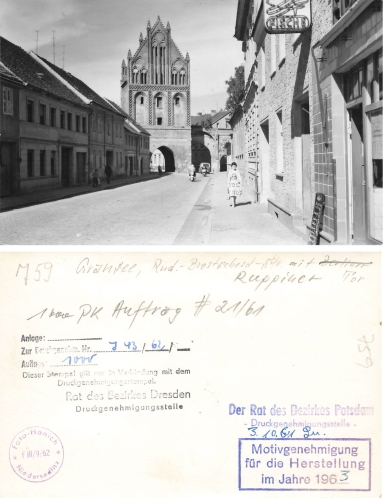 FISCHE
M59 Gransee, Rud.-Breitscheid-Str. mit
Ruppiner Tor
PK Auftrag # 21/61
Anlage:
Zur Genehmigung Nr. J 43 / 61 /
Auflage: 1000
Dieser Stempel gilt nur in Verbindung mit dem
Druckgenehmigungsstempel.
Rat des Bezirkes Dresden
Druckgenehmigungsstelle
Der Rat des Bezirkes Potsdam
- Druckgenehmigungsstelle -
3.10.61
Motivgenehmigung
für die Herstellung
im Jahre 1963
Foto-Hanich
Niedersedlitz